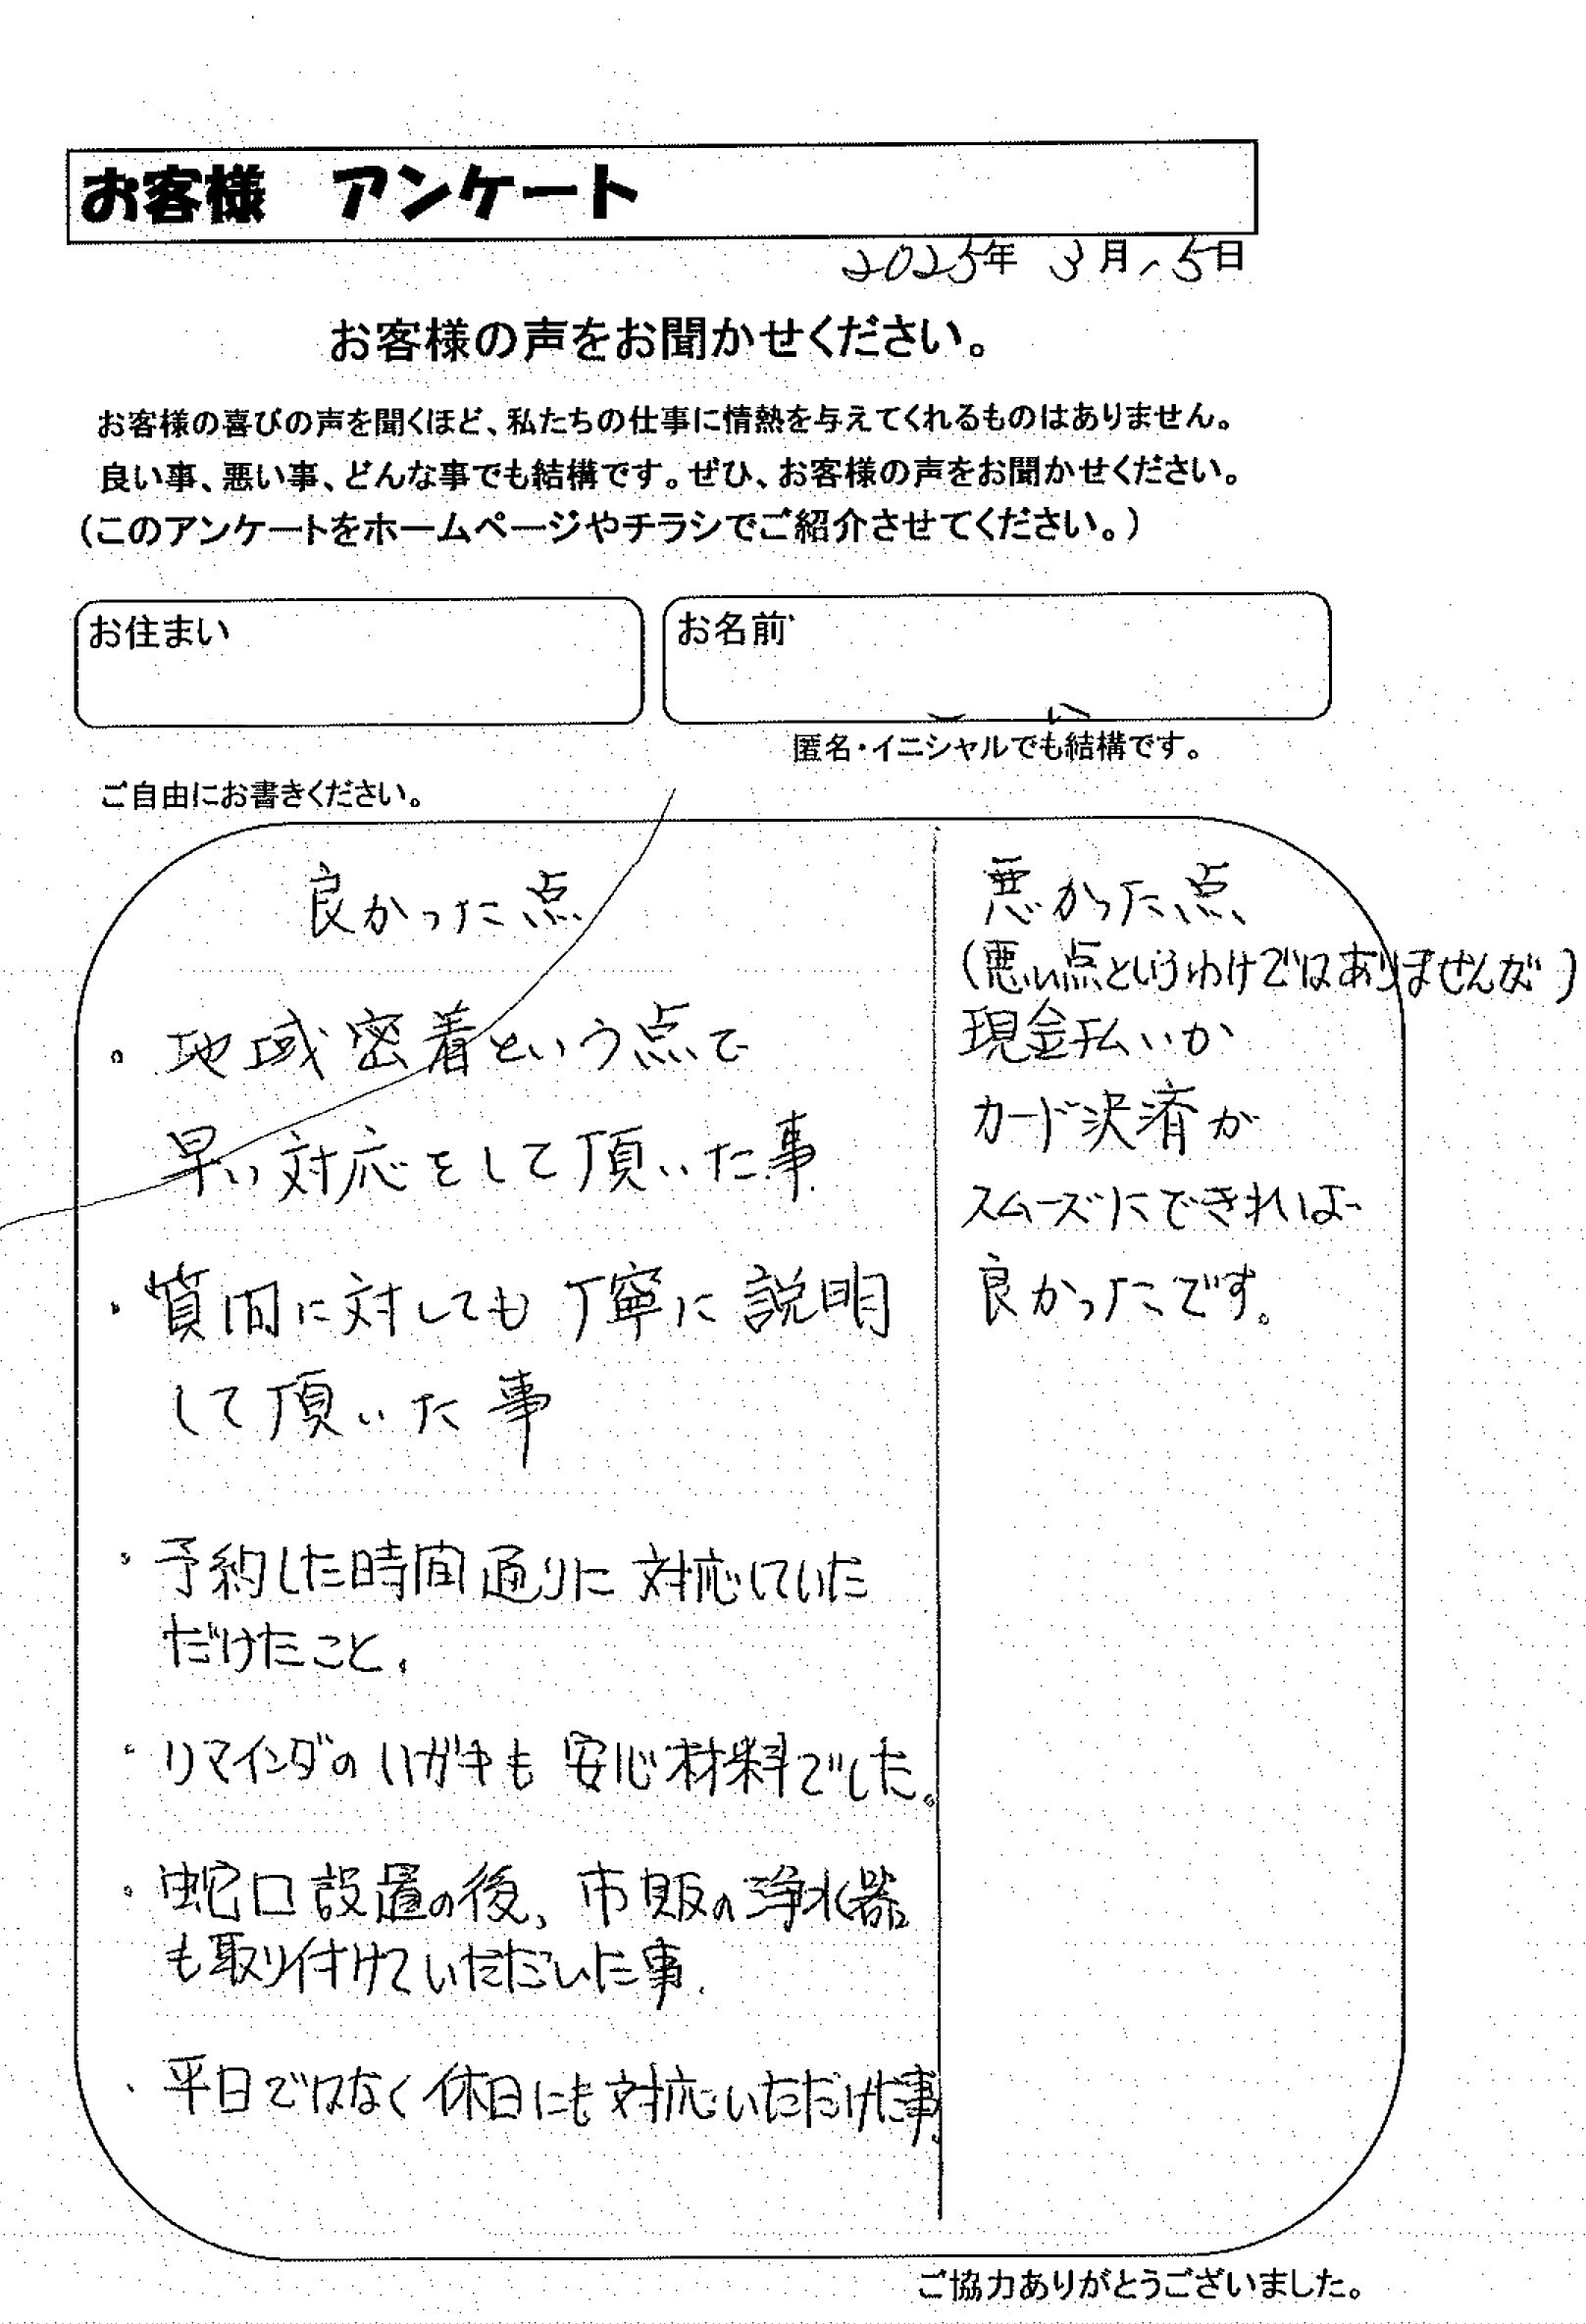 お客様 アンケート
2025年 3月15日
お客様の声をお聞かせください。
お客様の喜びの声を聞くほど、私たちの仕事に情熱を与えてくれるものはありません。
良い事、悪い事、どんな事でも結構です。ぜひ、お客様の声をお聞かせください。
(このアンケートをホームページやチラシでご紹介させてください。)
お住まい
お名前
匿名・イニシャルでも結構です。
ご自由にお書きください。
良かった点
・地域密着という点で
早い対応をして頂いた事
・質問に対しても丁寧に説明
して頂いた事
・予約した時間通りに対応していた
だけたこと。
・リマインダのハガキも安心材料でした。
・蛇口設置の後、市販の浄水器
も取り付けていただいた事.
・平日ではなく休日にも対応いただけた事.
悪かった点
(悪い点というわけではありませんが)
現金払いか
カード決済が
スムーズにできれば
良かったです。
ご協力ありがとうございました。